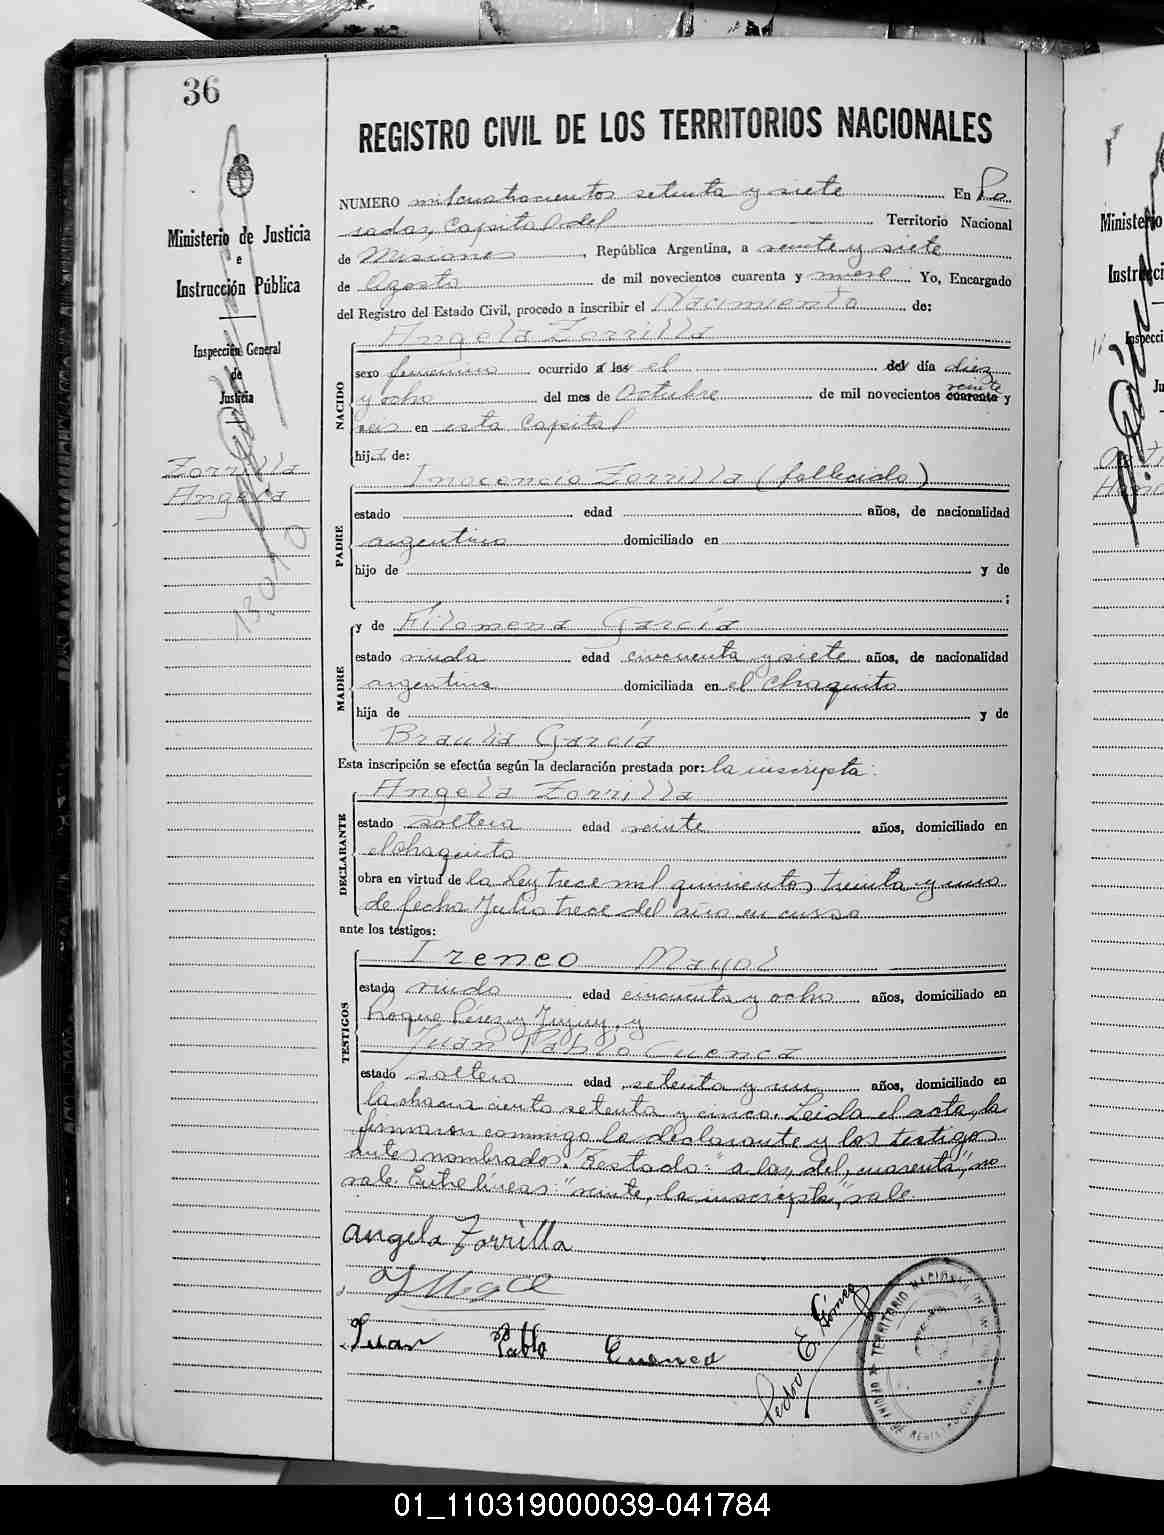 36
REGISTRO CIVIL DE LOS TERRITORIOS NACIONALES
Ministerio de Justicia
e
Instrucción Pública
Inspección General
de
Justicia
Zorrilla
Angela
NUMERO mil cuatrocientos setenta y siete En Po
sadas, Capital del Territorio Nacional
de Misiones, República Argentina, a veinte y siete
de Agosto de mil novecientos cuarenta y nueve Yo, Encargado
del Registro del Estado Civil, procedo a inscribir el Nacimiento de:
Angela Zorrilla
NACIDO
sexo femenino ocurrido a las el del día diez
y ocho del mes de Octubre de mil novecientos cuarenta veinte y
seis en esta Capital
hija de:
Inocencio Zorrilla (fallecido)
PADRE
estado edad años, de nacionalidad
argentino domiciliado en
hijo de y de
;
y de Filomena García
MADRE
estado viuda edad cincuenta y siete años, de nacionalidad
argentina domiciliada en el Chaquito
hija de y de
Braulia García
Esta inscripción se efectúa según la declaración prestada por: la inscripta:
Angela Zorrilla
DECLARANTE
estado soltera edad veinte años, domiciliado en
el Chaquito
obra en virtud de la Ley trece mil quinientos treinta y uno
de fecha Julio trece del año en curso
ante los testigos:
Ireneo Mayol
TESTIGOS
estado viudo edad cincuenta y ocho años, domiciliado en
Roque Perez y Jujuy, y
Juan Pablo Cuenca
estado soltero edad setenta y un años, domiciliado en
la chacra ciento setenta y cinco. Leída el acta, la
firmaron conmigo la declarante y los testigos
antes nombrados. Testado: "a las, del, cuarenta", no
vale. Entre líneas: "veinte, la inscripta", vale.
Angela Zorrilla
Juan Pablo Cuenca
Pedro E. Gómez
01_110319000039-041784